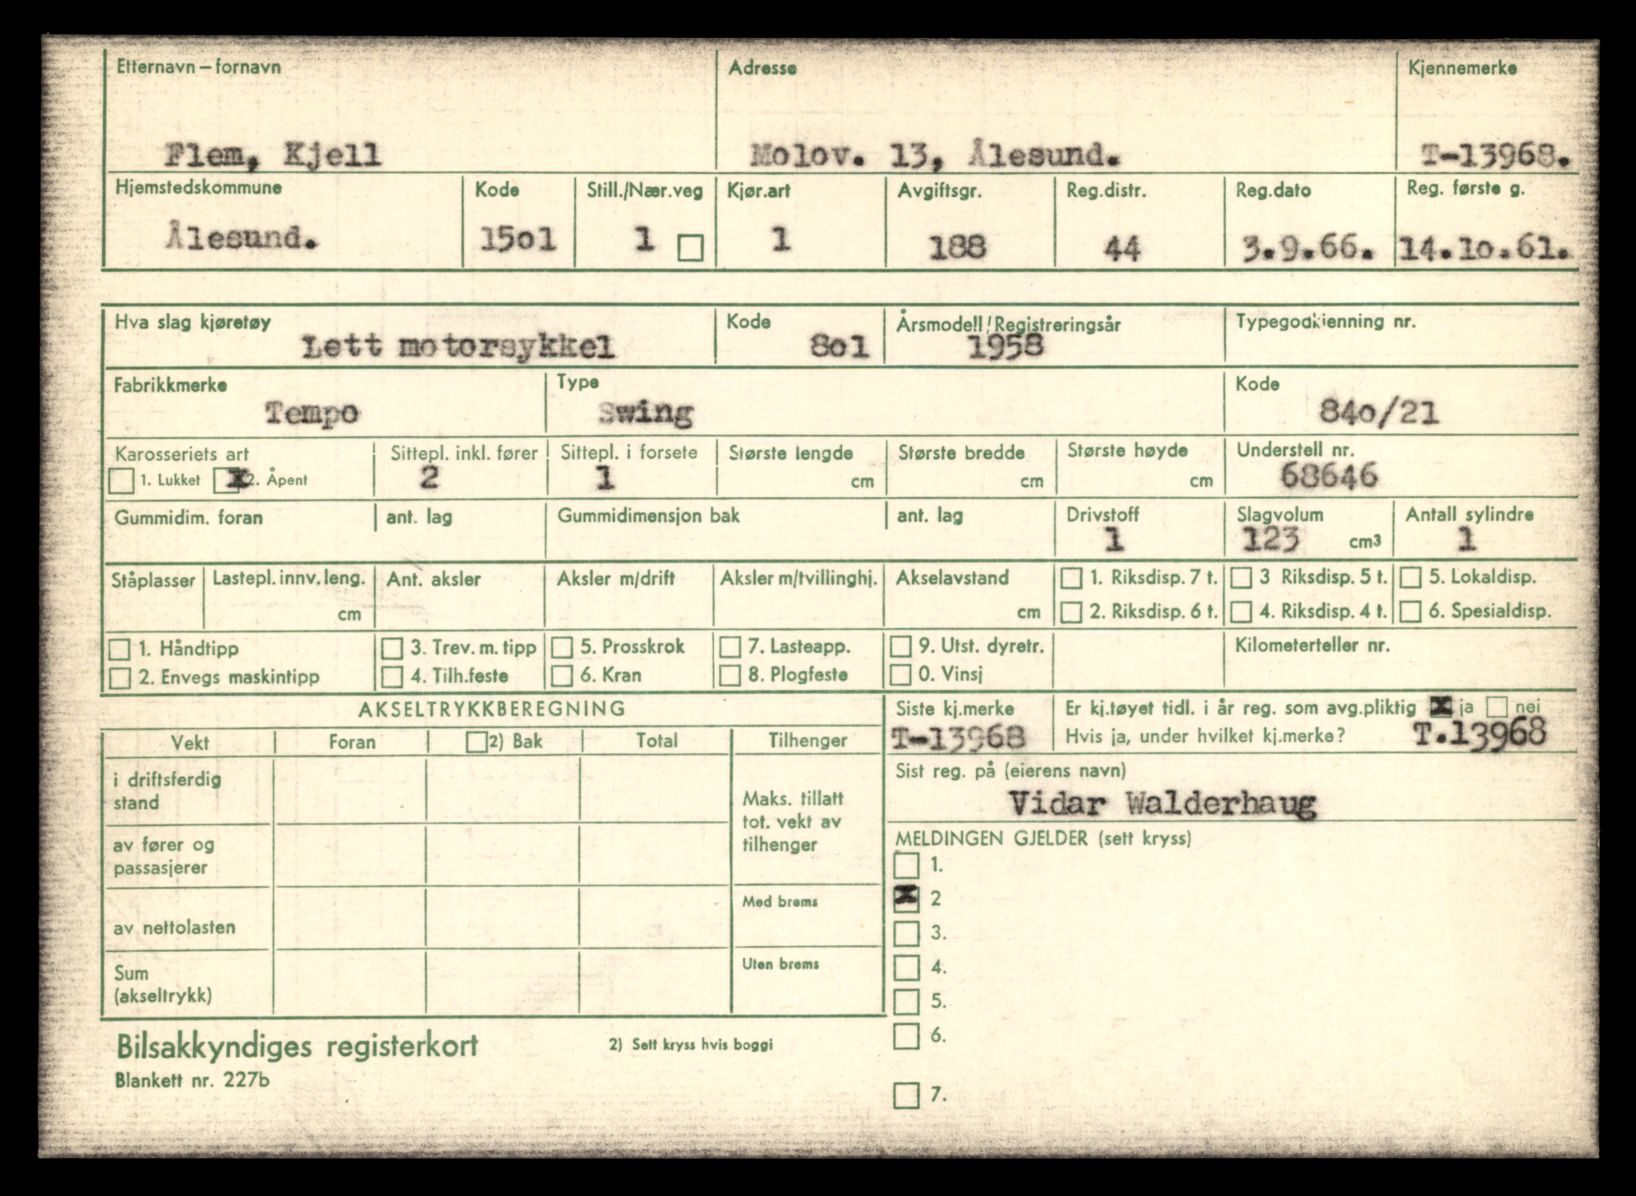 Etternavn – fornavn Adresse Kjennemerke
Flem, Kjell Molov. 13, Ålesund. T-13968.
Hjemstedskommune Kode Still./Nær.veg Kjør.art Avgiftsgr. Reg.distr. Reg.dato Reg. første g.
Ålesund. 15o1 1 1 188 44 3.9.66. 14.1o.61.
Hva slag kjøretøy Kode Årsmodell/Registreringsår Typegodkjenning nr.
Lett motorsykkel 8o1 1958
Fabrikkmerke Type Kode
Tempo Swing 84o/21
Karosseriets art Sittepl. inkl. fører Sittepl. i forsete Største lengde Største bredde Største høyde Understell nr.
1. Lukket X 2. Åpent 2 1 cm cm cm 68646
Gummidim. foran ant. lag Gummidimensjon bak ant. lag Drivstoff Slagvolum Antall sylindre
1 123 cm3 1
Ståplasser Lastepl. innv. leng. Ant. aksler Aksler m/drift Aksler m/tvillinghj. Akselavstand 1. Riksdisp. 7 t. 3 Riksdisp. 5 t. 5. Lokaldisp.
cm cm 2. Riksdisp. 6 t. 4. Riksdisp. 4 t. 6. Spesialdisp.
1. Håndtipp 3. Trev. m. tipp 5. Prosskrok 7. Lasteapp. 9. Utst. dyretr. Kilometerteller nr.
2. Envegs maskintipp 4. Tilh.feste 6. Kran 8. Plogfeste 0. Vinsj
AKSELTRYKKBEREGNING Siste kj.merke Er kj.tøyet tidl. i år reg. som avg.pliktig X ja nei
T-13968 Hvis ja, under hvilket kj.merke? T.13968
Vekt Foran 2) Bak Total Tilhenger
Sist reg. på (eierens navn)
Vidar Walderhaug
i driftsferdig
stand
Maks. tillatt
tot. vekt av
tilhenger
av fører og
passasjerer
MELDINGEN GJELDER (sett kryss)
1.
X 2
Med brems
av nettolasten
3.
Uten brems
4.
Sum
(akseltrykk)
5.
6.
Bilsakkyndiges registerkort 2) Sett kryss hvis boggi
Blankett nr. 227b
7.